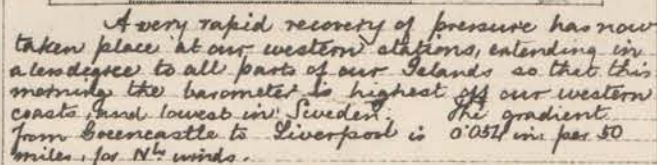 A very rapid recovery of pressure has now
taken place at our western stations, extending in
a less degree to all parts of our Islands so that this
morning the barometer is highest off our western
coasts, and lowest in Sweden. The gradient
from Greencastle to Liverpool is 0.054 in. per 50
miles, for Nly winds.